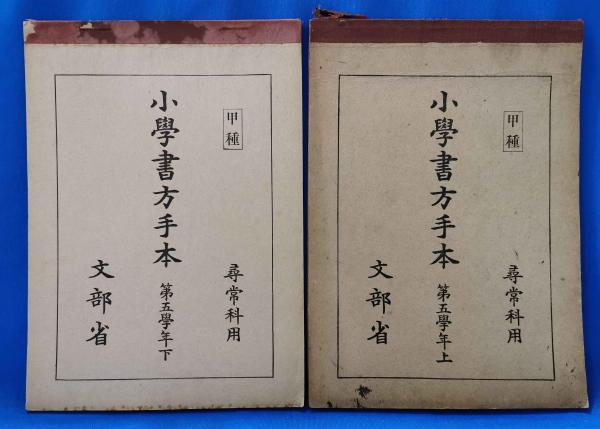 甲種
尋常科用
小學書方手本 第五學年上
文部省
甲種
尋常科用
小學書方手本 第五學年下
文部省